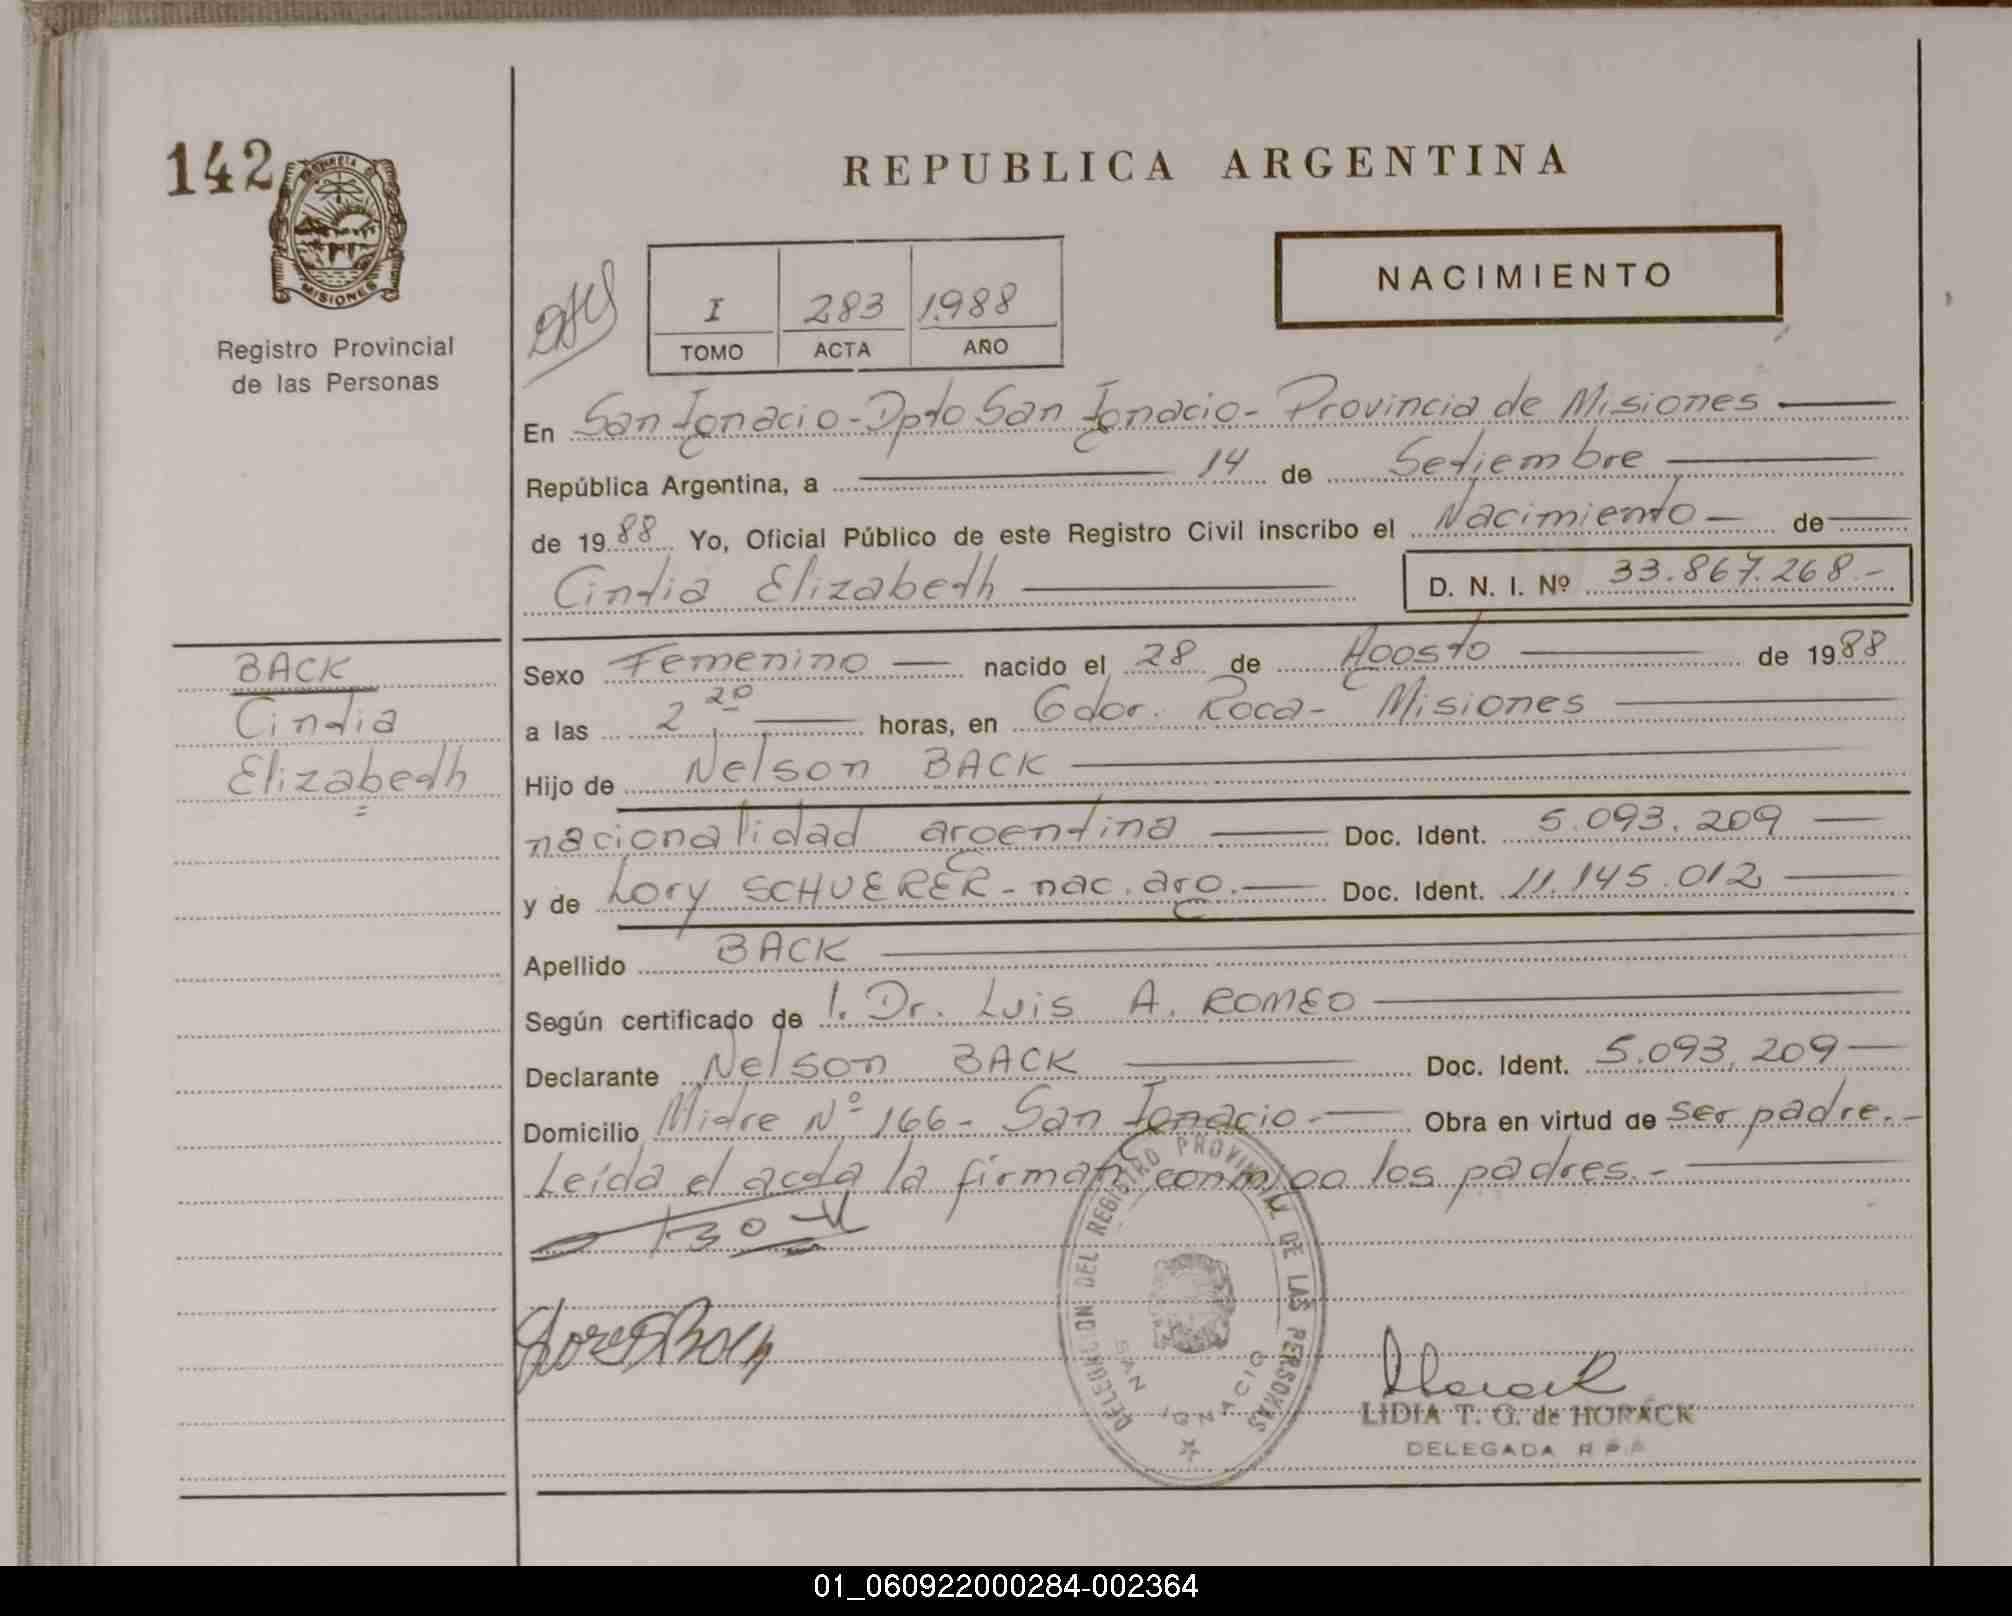 142
PROVINCIA
MISIONES
Registro Provincial
de las Personas
REPUBLICA ARGENTINA
NACIMIENTO
I 283 1.988
TOMO ACTA AÑO
En San Ignacio - Dpto San Ignacio - Provincia de Misiones
República Argentina, a 14 de Setiembre
de 19 88 Yo, Oficial Público de este Registro Civil inscribo el Nacimiento de
Cintia Elizabeth D. N. I. Nº 33.867.268.-
BACK
Cintia
Elizabeth
Sexo Femenino nacido el 28 de Agosto de 19 88
a las 2 20 horas, en Gdor. Roca - Misiones
Hijo de Nelson BACK
nacionalidad argentina Doc. Ident. 5.093.209
y de Lory SCHUERER - nac. arg. Doc. Ident. 11.145.012
Apellido BACK
Según certificado de 1. Dr. Luis A. ROMEO
Declarante Nelson BACK Doc. Ident. 5.093.209
Domicilio Mitre Nº 166 - San Ignacio - Obra en virtud de ser padre.-
Leída el acta la firman conmigo los padres.-
DELEGACION DEL REGISTRO PROVINCIAL DE LAS PERSONAS
SAN IGNACIO
LIDIA T. G. de HORACK
DELEGADA R P P
01_060922000284-002364